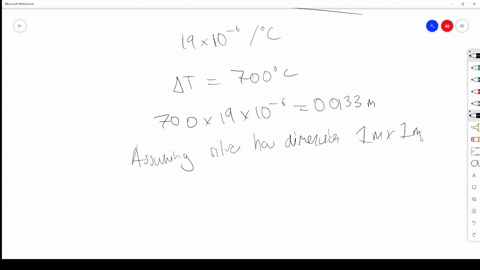 Microsoft Whiteboard
19 × 10⁻⁶ /°C
ΔT = 700°C
700 × 19 × 10⁻⁶ = 0.0133 m
Assuming dimension 1m × 1m